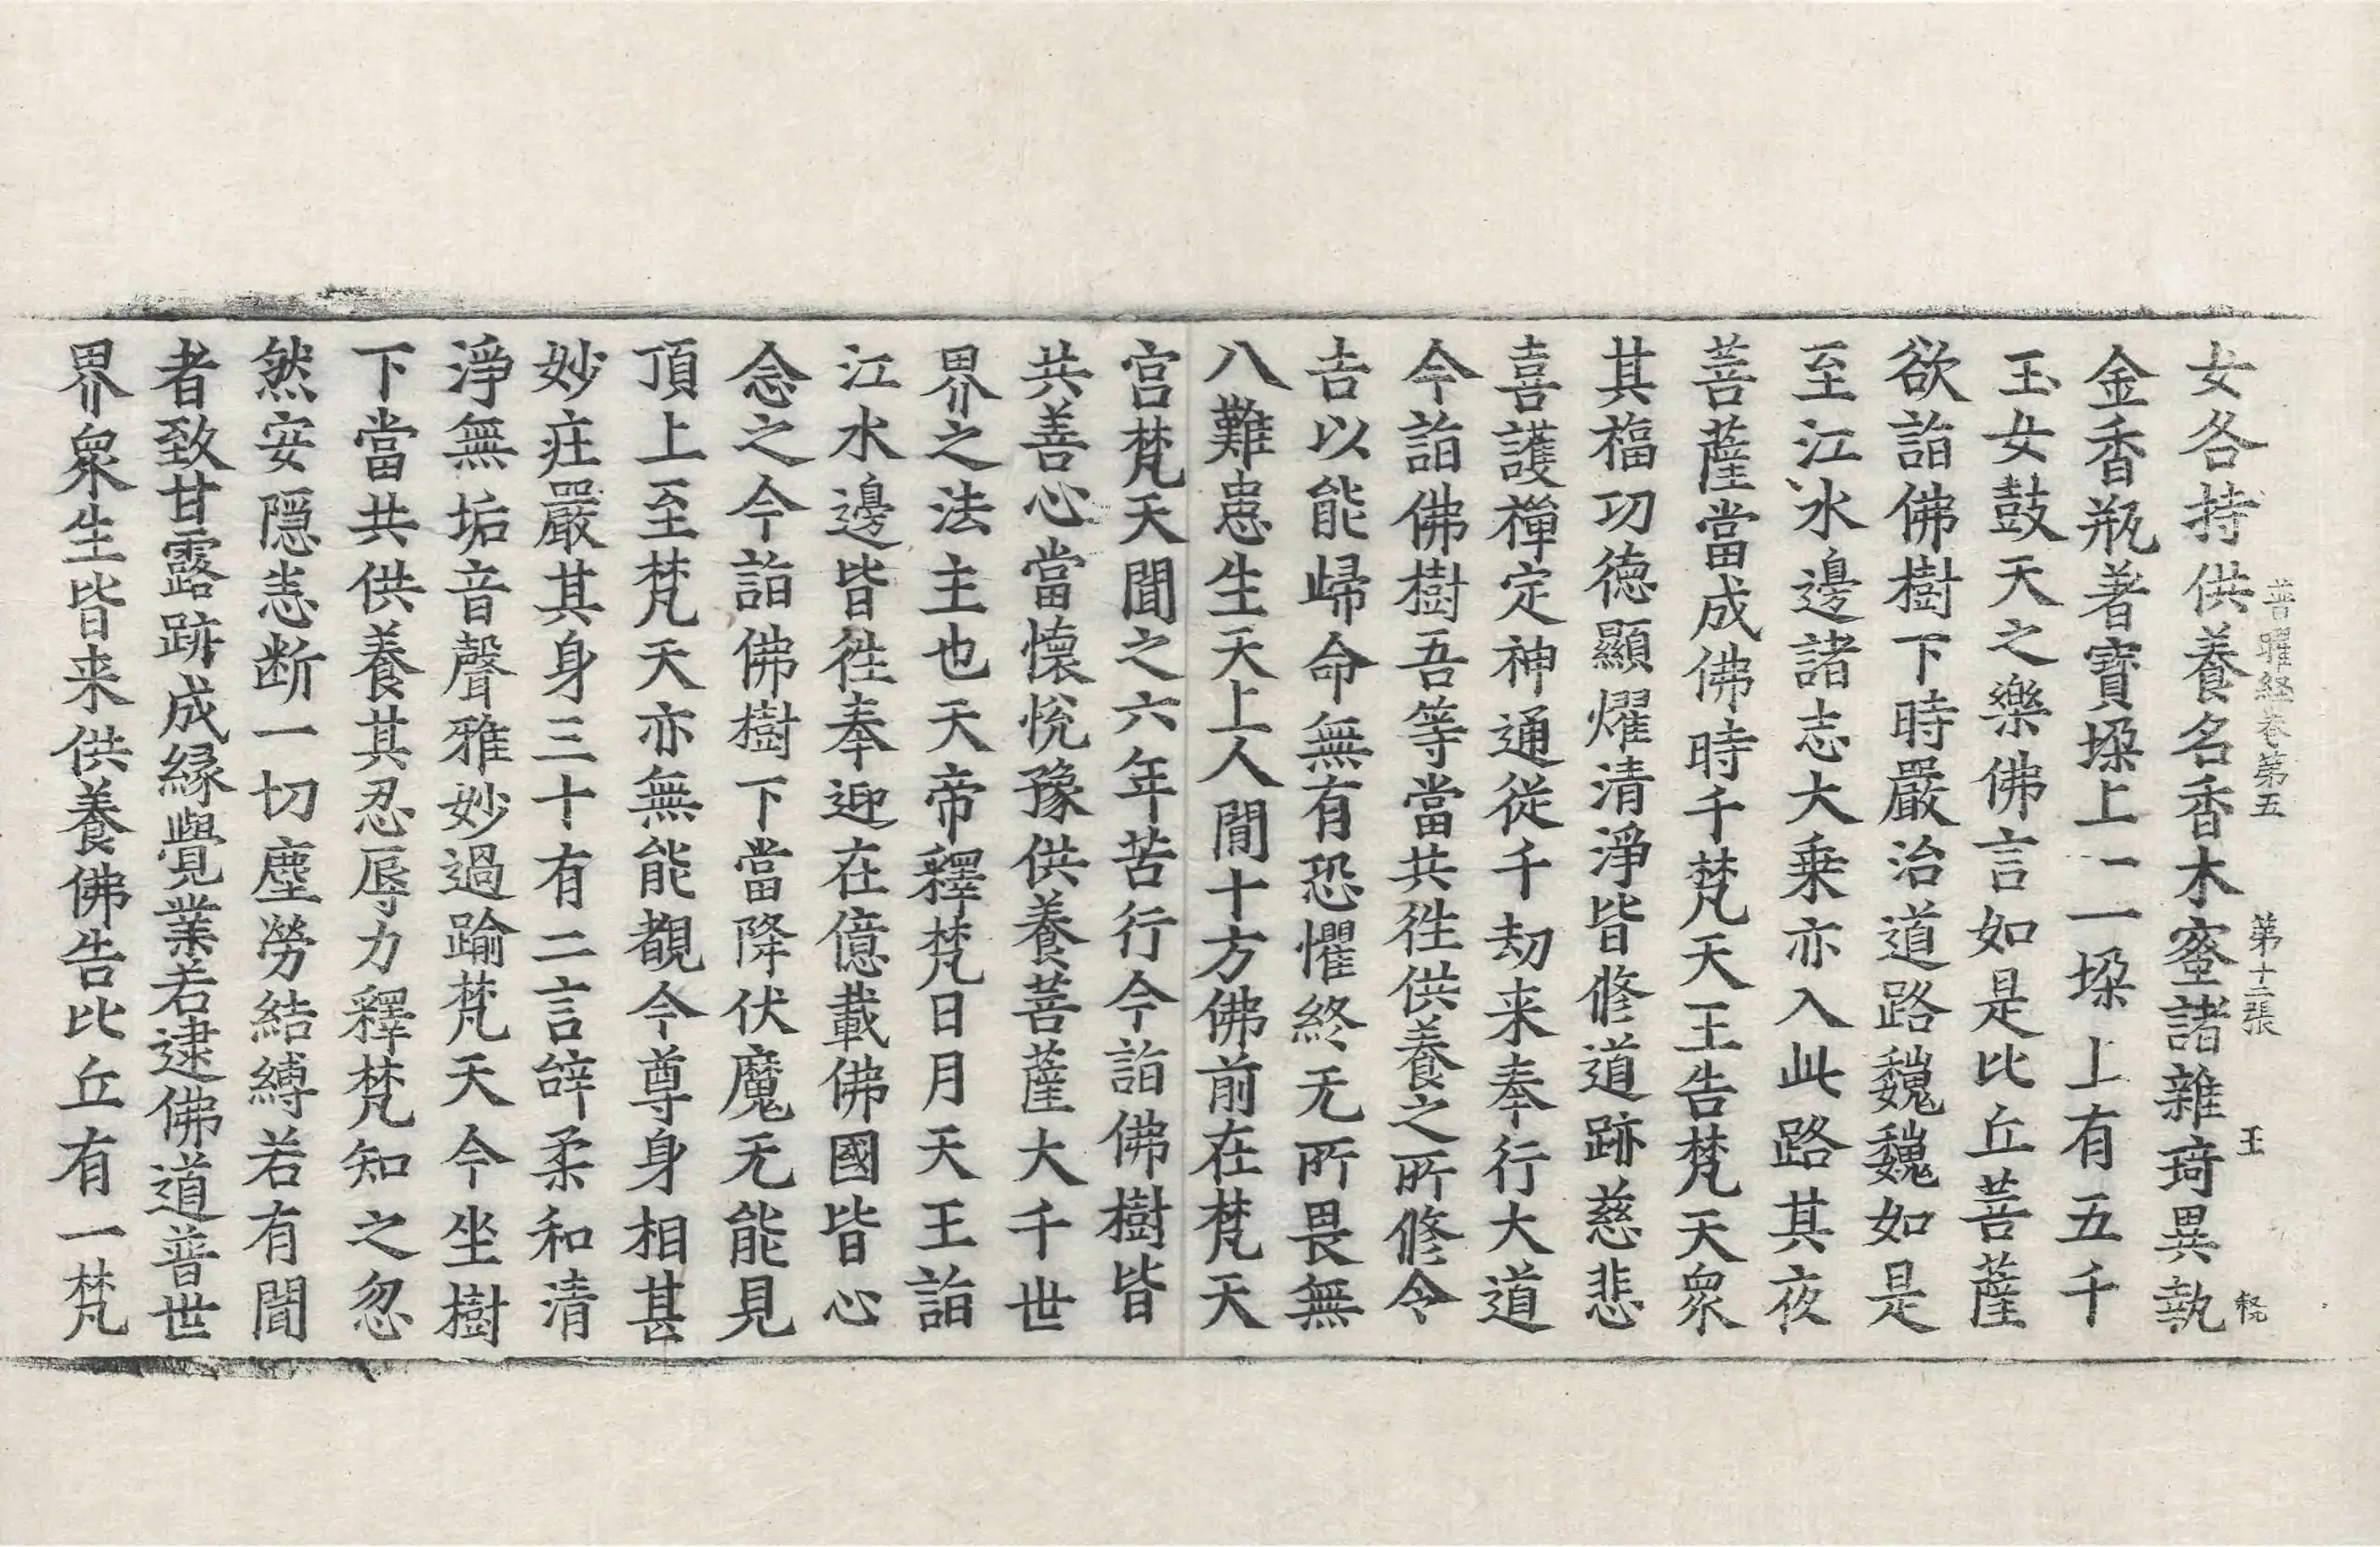 普曜経卷第五 第十二張 王
女各持供養名香木蜜諸雜琦異執
金香瓶著寶垜上一一垜上有五千
玉女鼓天之樂佛言如是比丘菩薩
欲詣佛樹下時嚴治道路巍巍如是
至江水邊諸志大乗亦入此路其夜
菩薩當成佛時千梵天王告梵天衆
其福功德顯燿清淨皆修道跡慈悲
喜護禪定神通從千劫来奉行大道
今詣佛樹吾等當共徃供養之所修令
吉以能歸命無有恐懼終无所畏無
八難患生天上人間十方佛前在梵天
宮梵天聞之六年苦行今詣佛樹皆
共善心當懷悅豫供養菩薩大千世
界之法主也天帝釋梵日月天王詣
江水邊皆徃奉迎在億載佛國皆心
念之今詣佛樹下當降伏魔无能見
頂上至梵天亦無能覩今尊身相甚
妙庄嚴其身三十有二言辝柔和清
淨無垢音聲雅妙過踰梵天今坐樹
下當共供養其忍辱力釋梵知之忽
然安隱恚断一切塵勞結縛若有聞
者致甘露跡成縁覺業若逮佛道普世
界衆生皆来供養佛告比丘有一梵